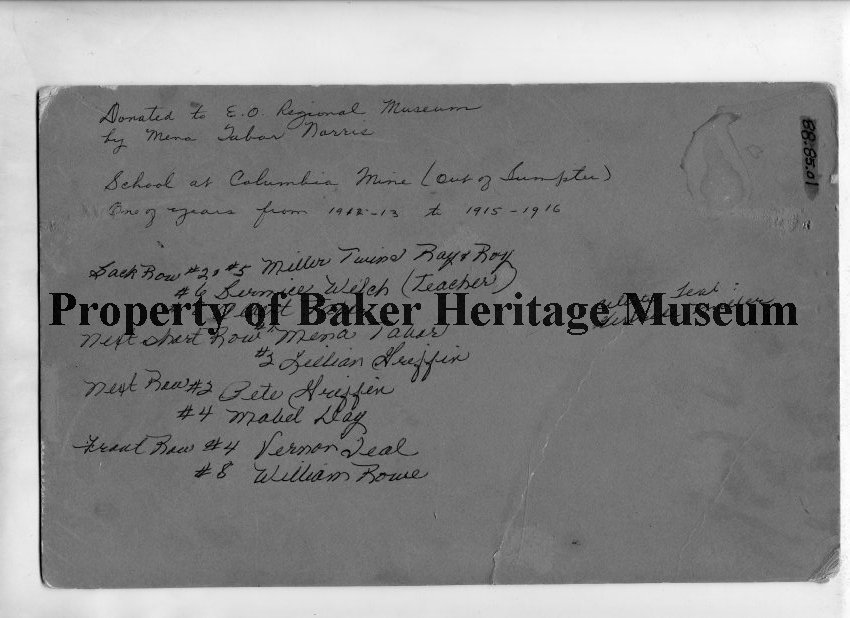 Donated to E.O. Regional Museum
by Mena Tabor Norris
School at Columbia Mine (Out of Sumpter)
One of years from 1912-13 to 1915-1916
Back Row #2 & #5 Miller Twins Ray & Roy
#6 Bernice Welch (Teacher)
Teal
Property of Baker Heritage Museum
Next short Row Mena Tabor
#2 Lillian Griffin
Next Row #2 Pete Griffin
#4 Mabel Day
Front Row #4 Vernon Teal
#8 William Rowe
88.85.01